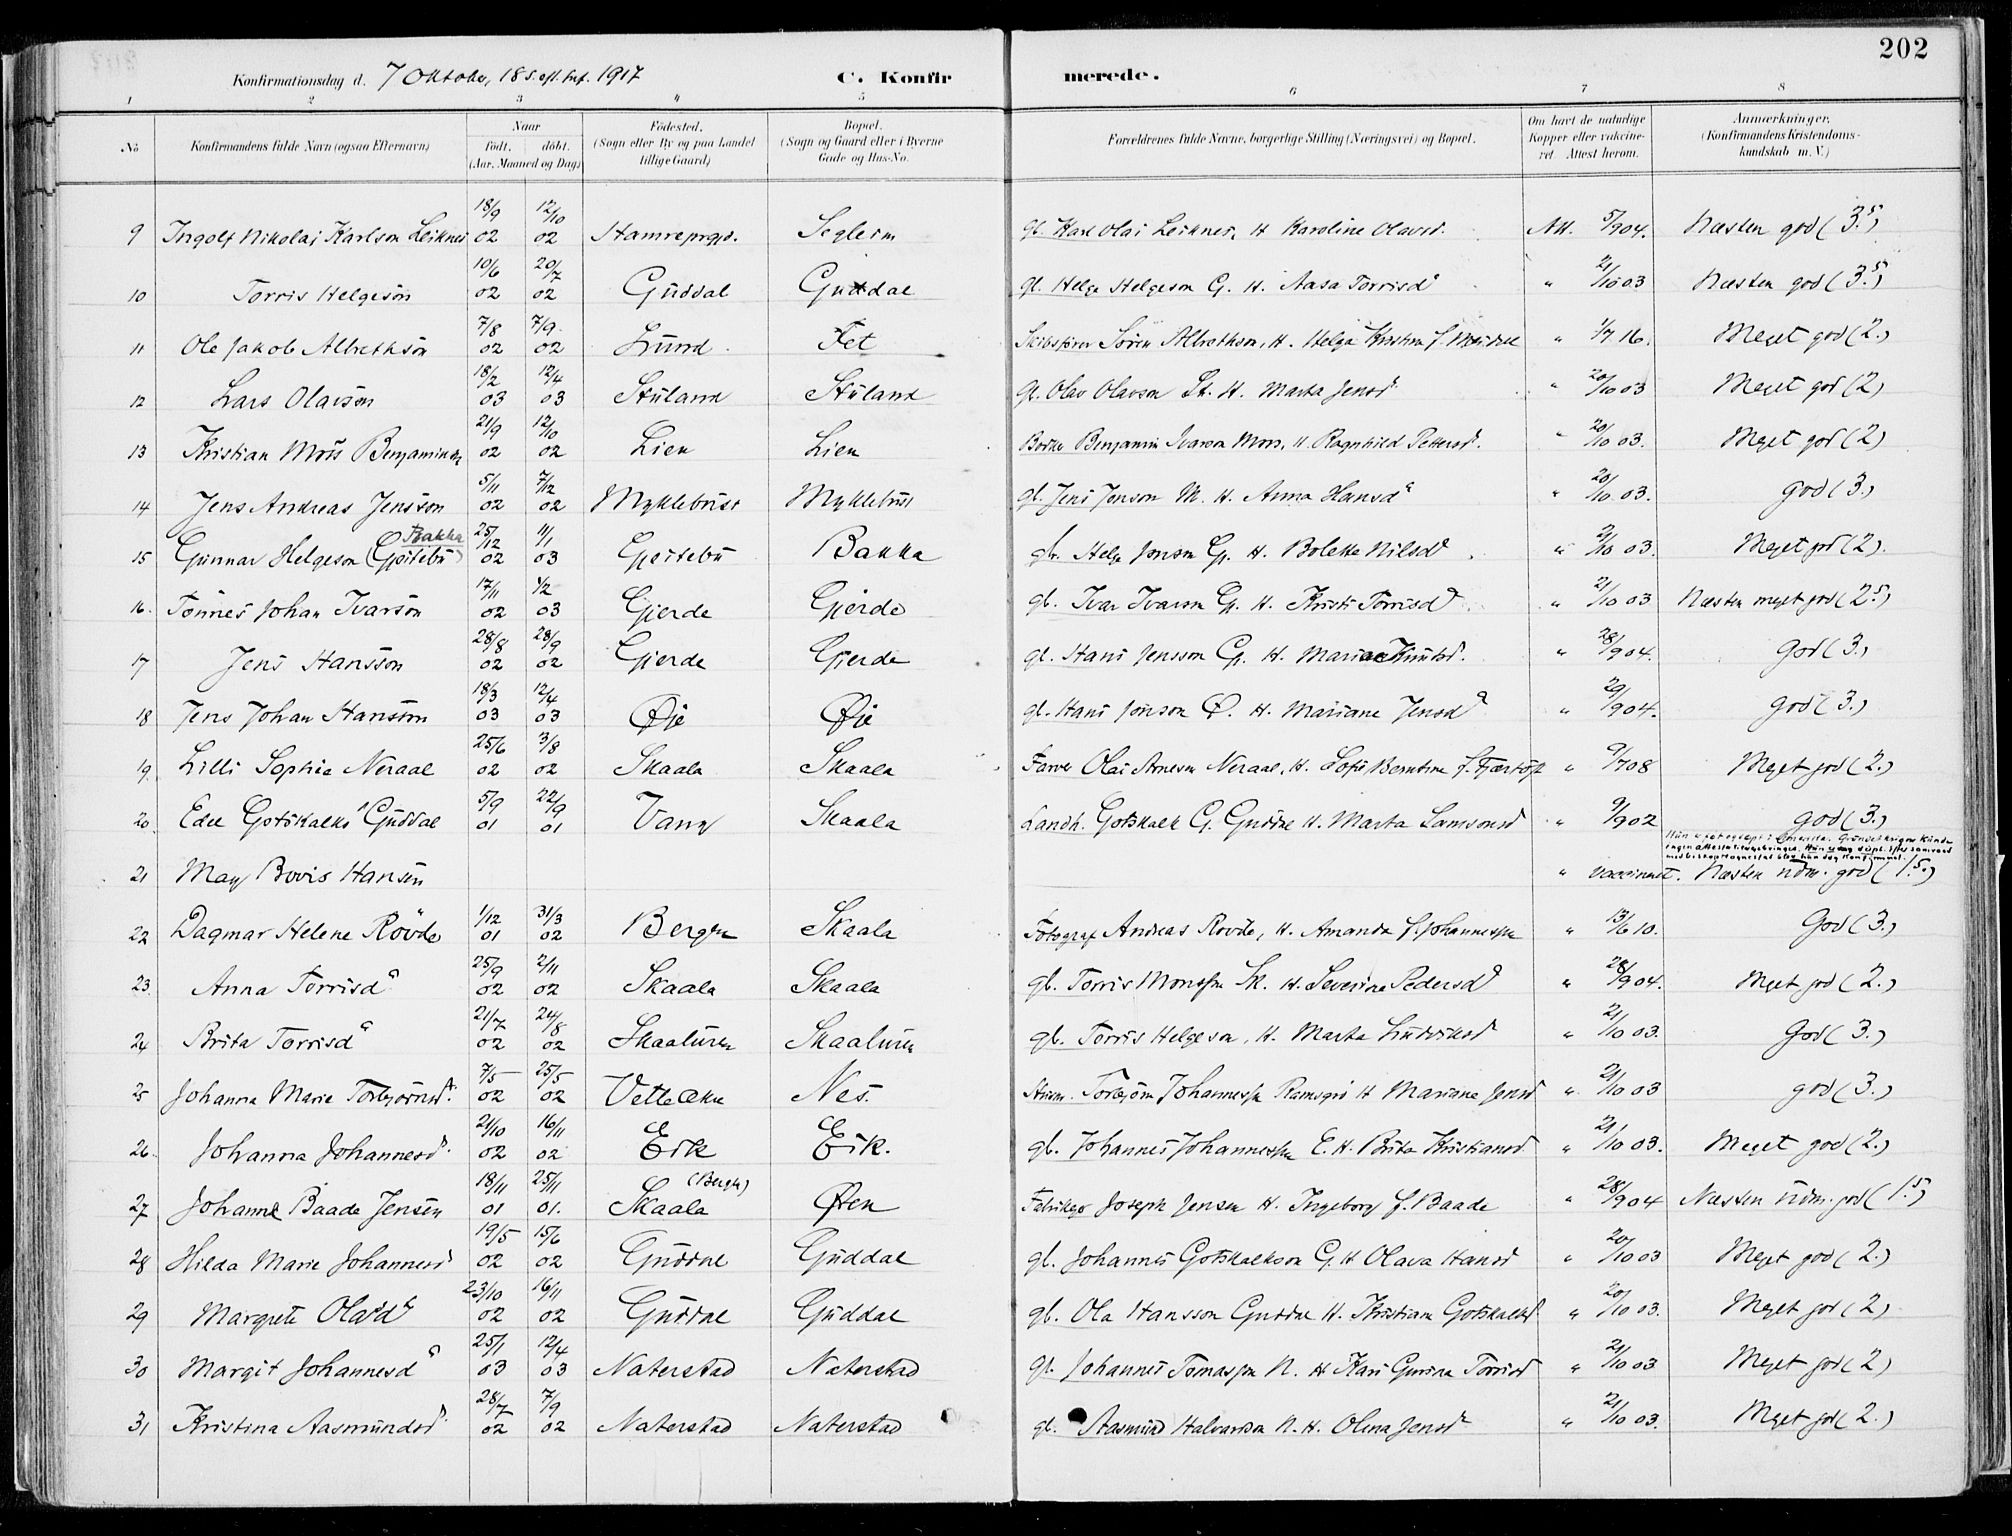 202
Konfirmationsdag d. 7 Oktober, 18 s. eft. tref. 1917 C. Konfirmerede.
1 2 3 4 5 6 7 8
No. Konfirmandens fulde Navn (ogsaa Efternavn) Naar født. døbt. (Aar, Maaned og Dag) Fødested. (Sogn eller By og paa Landet tillige Gaard) Bopæl. (Sogn og Gaard eller i Byerne Gade og Hus-No. Forældrenes fulde Navne, borgerlige Stilling (Næringsvei) og Bopæl. Om havt de naturlige Kopper eller vaccineret. Attest herom. Anmærkninger. (Konfirmandens Kristendomskundskab m. V.)
9 Ingolf Nikolai Karlson Leiknes 18/9 02 12/10 02 Hamreprgd. Segleim gb. Karl Olai Leiknes, H. Karoline Olavsd. Att. 5/9 04. Næsten god (3.5)
10 Torris Helgeson 10/6 02 20/7 02 Guddal Guddal gb. Helge Helgeson G. H. Aasa Torrisd. " 21/10 03 Næsten god (3.5)
11 Ole Jakob Albrethson 7/8 02 7/9 02 Lund Fet Skibsfører Sören Albrethson, H. Helga Kristina f. " 1/7 16. Meget god (2.)
12 Lars Olavson 18/2 03 12/4 03 Stuland Stuland gb. Olav Olavson St. H. Marta Jensd. " 20/10 03 Meget god (2)
13 Kristian Mors Benjaminsen 21/9 02 12/10 02 Lien Lien Bødker Benjamin Ivarson Mors, H. Ragnhild Pettersd. " 20/10 03. Meget god (2)
14 Jens Andreas Jensson 5/11 02 7/12 02 Myklebust Myklebust gb. Jens Jenson M. H. Anna Hansd. " 20/10 03. god (3.)
15 Gunnar Helgeson (Gjöitebu) Bakka 25/12 02 11/1 03 Gjöitebu Bakka gbr. Helge Jonson Gj. H. Bolette Nilsd. " 21/10 03. Meget god (2).
16. Tönnes Johan Ivarson 17/11 02 1/2 03 Gjerde Gjerde gb. Ivar Ivarson Gj. H. Kristi Torrisd. " 21/10 03 Næsten meget god (2.5)
17 Jens Hansson 28/8 02 28/9 02 Gjerde Gjerde gb. Hans Jensson Gj. H. Maria Knutsd. " 28/9 04. God (3.)
18 Jens Johan Hansson 18/3 03 12/4 03 Øje Øje gb. Hans Jonson Ø. H. Mariane Jensd. " 29/9 04. God (3.)
19 Lilli Sophie Neraal 25/6 02 3/8 02 Skaala Skaala Farver Olai Arneson Neraal, H. Sofie Berntine f. Fjærtoft " 9/7 08 Meget god (2.)
20. Edel Gotskalks. Guddal 5/9 01 22/9 01 Vang Skaala Landh. Gotskalk G. Guddal H. Marta Samsonsd. " 9/9 02 god (3.)
21 May Bovis Hansen " vaccineret. Næsten udm. god (1.5.)
22 Dagmar Helene Rövde 1/12 01 31/3 02 Bergen Skaala Fotograf Andreas Rövde, H. Amanda f. Johannessen " 13/6 10. God (3.)
23. Anna Torrisd. 25/9 02 2/11 02 Skaala Skaala gb. Torris Monssen Sk. H. Severine Pedersd. " 28/9 04. Meget god (2.)
24 Brita Torrisd. 21/7 02 24/8 02 Skaaluren Skaaluren gb. Torris Helgeson, H. Marta Ludviksd. " 21/10 03. God (3.)
25 Johanna Marie Torbjörnsd. 7/5 02 25/5 02 Nes. Torbjörn Johannessen H. Mariane Jensd. " 21/10 03 god (3.)
26. Johanna Johannesd. 21/10 02 16/11 02 Eik Eik. gb. Johannes Johannessen E. H. Brita Kristiansd. " 21/10 03. Meget god (2.)
27 Johanne Baade Jensen 18/11 01 25/11 01. Skaala (Bergen) Øren Fabrikeier Joseph Jensen H. Ingeborg f. Baade " 28/9 04 Næsten udm. god (1.5)
28 Hilda Marie Johannesd. 19/5 02 15/6 02 Guddal Guddal gb. Johannes Gotskalkson G. H. Olava Hansd. " 20/10 03 Meget god (2.)
29 Margrete Olasd. 23/10 02 16/11 02 Guddal Guddal gb. Ola Hansson Guddal H. Kristiane Gotskalksd. " 20/10 03. Meget god (2)
30 Margit Johannesd. 25/1 03 12/4 03 Naterstad Naterstad gb. Johannes Tomassen N. H. Kari Gurina Torrisd. " 21/10 03 Meget god (2)
31 Kristina Aasmundsd. 28/7 02 7/9 02 Naterstad Naterstad gb. Aasmund Halvardson N. H. Olina Jensd. " 21/10 03. Meget god (2.)